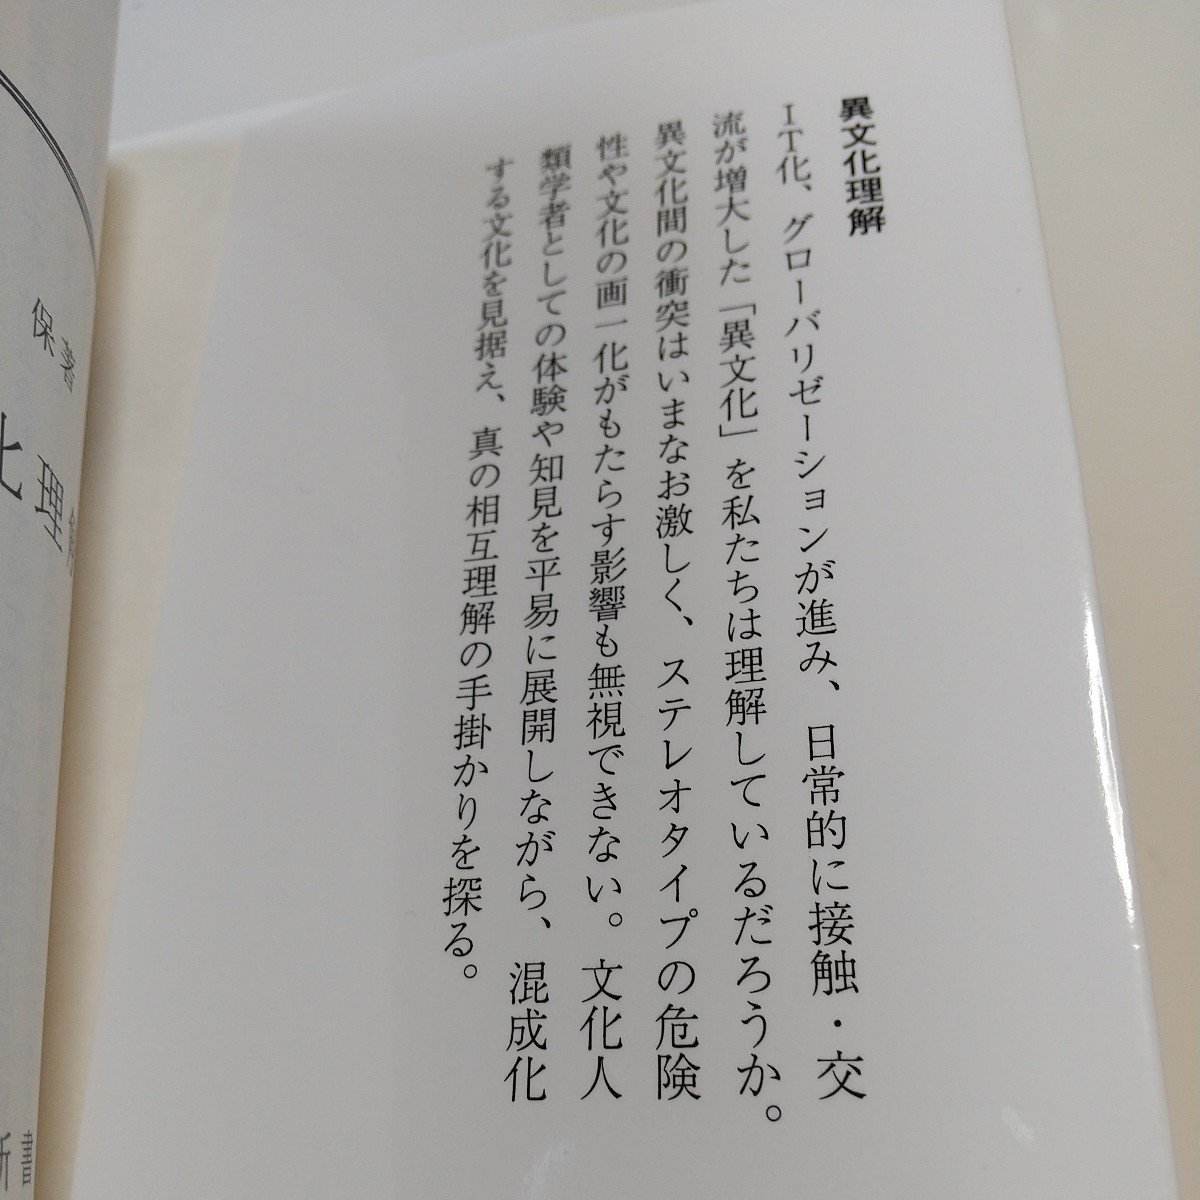 異文化理解
IT化、グローバリゼーションが進み、日常的に接触・交
流が増大した「異文化」を私たちは理解しているだろうか。
異文化間の衝突はいまなお激しく、ステレオタイプの危険
性や文化の画一化がもたらす影響も無視できない。文化人
類学者としての体験や知見を平易に展開しながら、混成化
する文化を見据え、真の相互理解の手掛かりを探る。
保著
化理解
新書